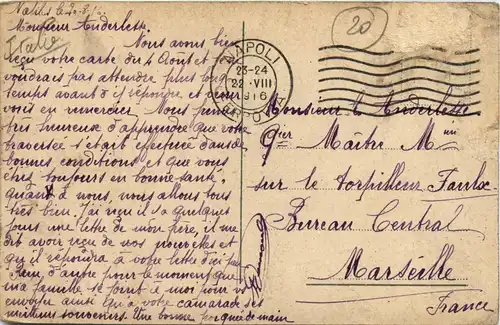 Naples le 22-8-16
Italie
Monsieur Anderlesse.
Nous avons bien
reçu votre carte du 4 Août et je ne
voudrais pas attendre plus long-
temps avant d'y répondre et vous
en remercier. Nous sommes
très heureux d'apprendre que votre
traversée s'était effectuée dans de
bonnes conditions et que vous
êtes toujours en bonne santé.
Quant à nous, nous allons tous
très bien. J'ai reçu il y a quelques
jours une lettre de mon père, il me
dit avoir reçu de vos nouvelles et
qu'il répondra à votre lettre d'ici peu
Rien d'autre pour le moment que
ma famille se joint à moi pour vous
envoyer ainsi qu'à votre camarade ses
meilleurs souvenirs. Une bonne poignée de main
20
NAPOLI
23-24
22-VIII
1916
Monsieur L. Anderlesse
Maître
sur le torpilleur
Bureau Central
Marseille
France